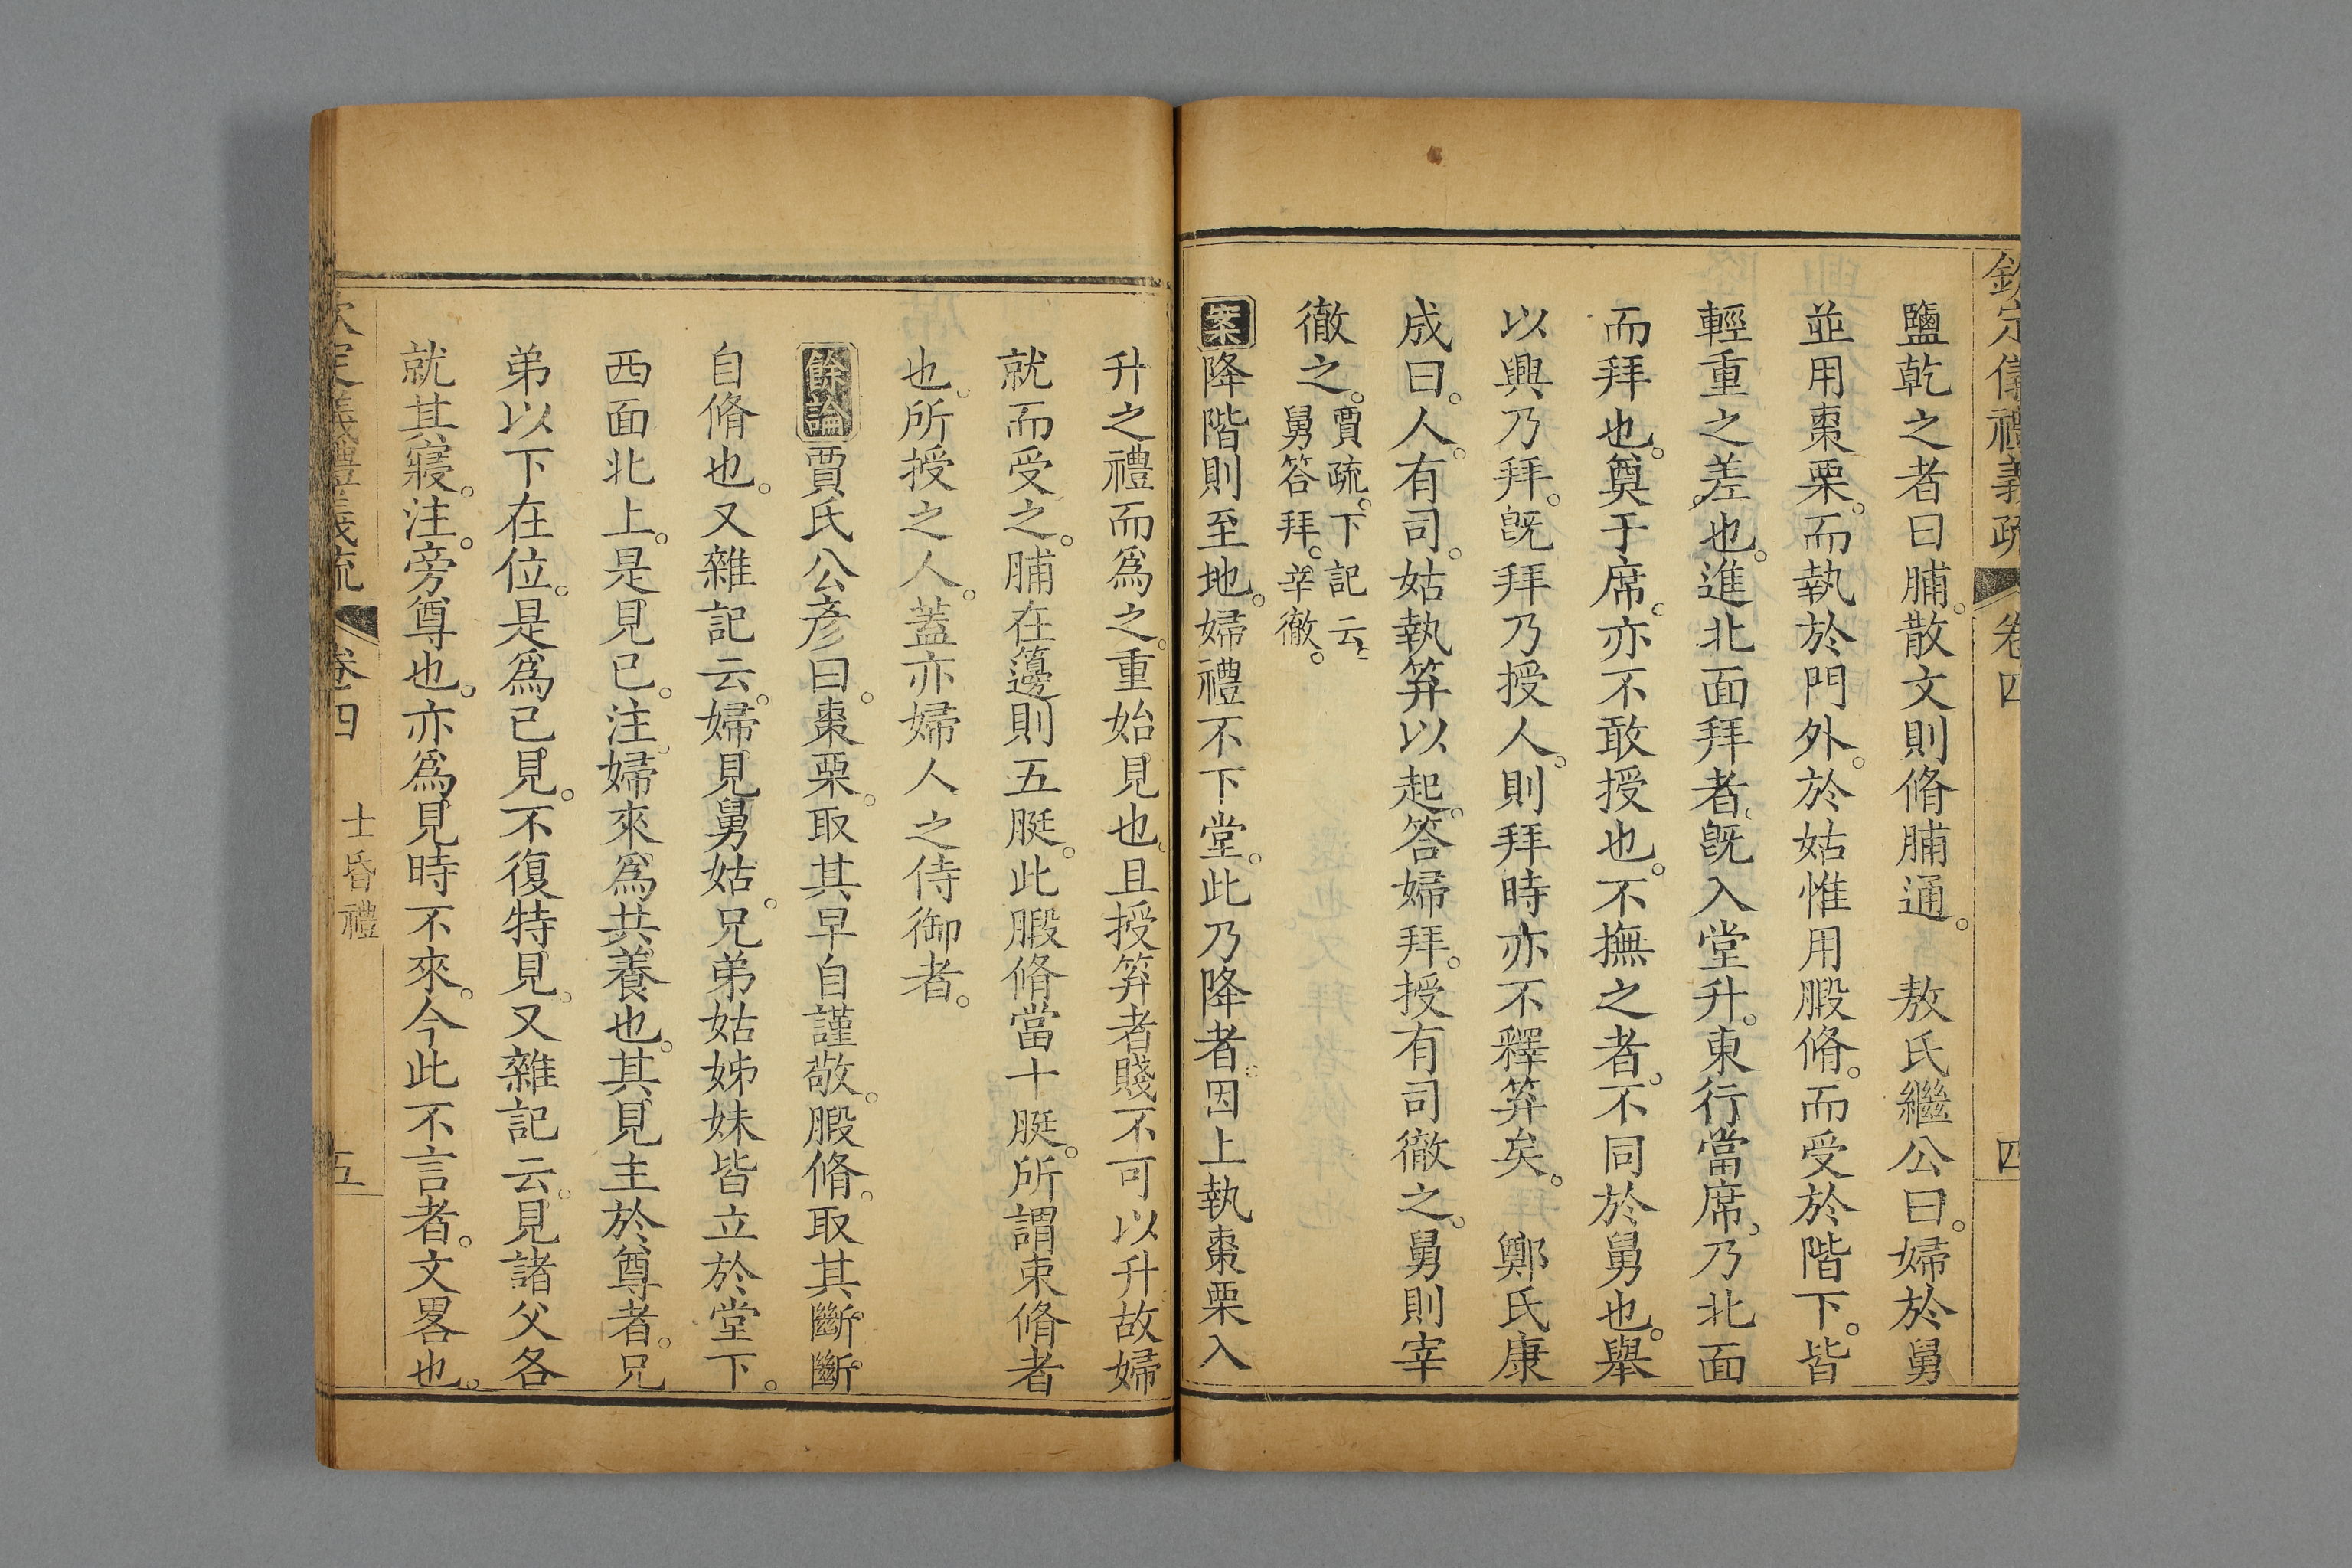 欽定儀禮義疏 卷四 四
鹽乾之者曰脯。散文則脩脯通。 敖氏繼公曰。婦於舅
並用棗栗。而執於門外。於姑惟用腶脩。而受於階下。皆
輕重之差也。進北面拜者。旣入堂升。東行當席。乃北面
而拜也。奠于席。亦不敢授也。不撫之者。不同於舅也。舉
以興乃拜。旣拜乃授人。則拜時亦不釋笲矣。 鄭氏康
成曰。人。有司。姑執笲以起。答婦拜。授有司徹之。舅則宰
徹之。賈疏。下記云。舅答拜。宰徹。
案降階則至地。婦禮不下堂。此乃降者。因上執棗栗入
升之禮而爲之。重始見也。且授笲者賤不可以升故婦
就而受之。脯在籩則五脡。此腶脩當十脡。所謂束脩者
也。所授之人。蓋亦婦人之侍御者。
餘論賈氏公彥曰。棗栗。取其早自謹敬。腶脩。取其斷斷
自脩也。又雜記云。婦見舅姑。兄弟姑姊妹皆立於堂下。
西面北上。是見已。注。婦來爲共養也。其見主於尊者。兄
弟以下在位。是爲已見。不復特見。又雜記云。見諸父各
就其寢。注。旁尊也。亦爲見時不來。今此不言者。文畧也。
欽定儀禮義疏 卷四 士昏禮 五